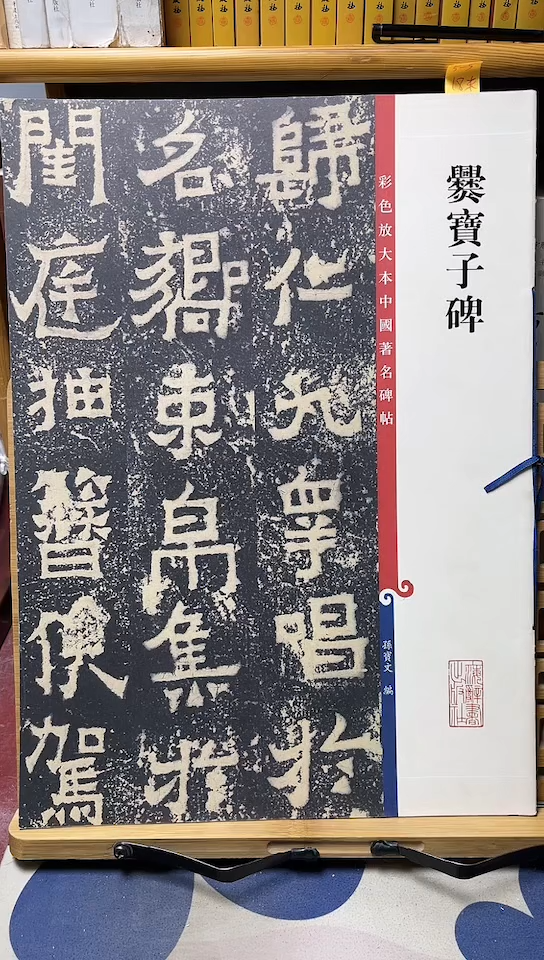 爨寶子碑
彩色放大本中國著名碑帖
孫寶文 編
上海辭書
出版社
歸仁九皋唱於
名嚮束帛集於
閨庭抽簪俟駕